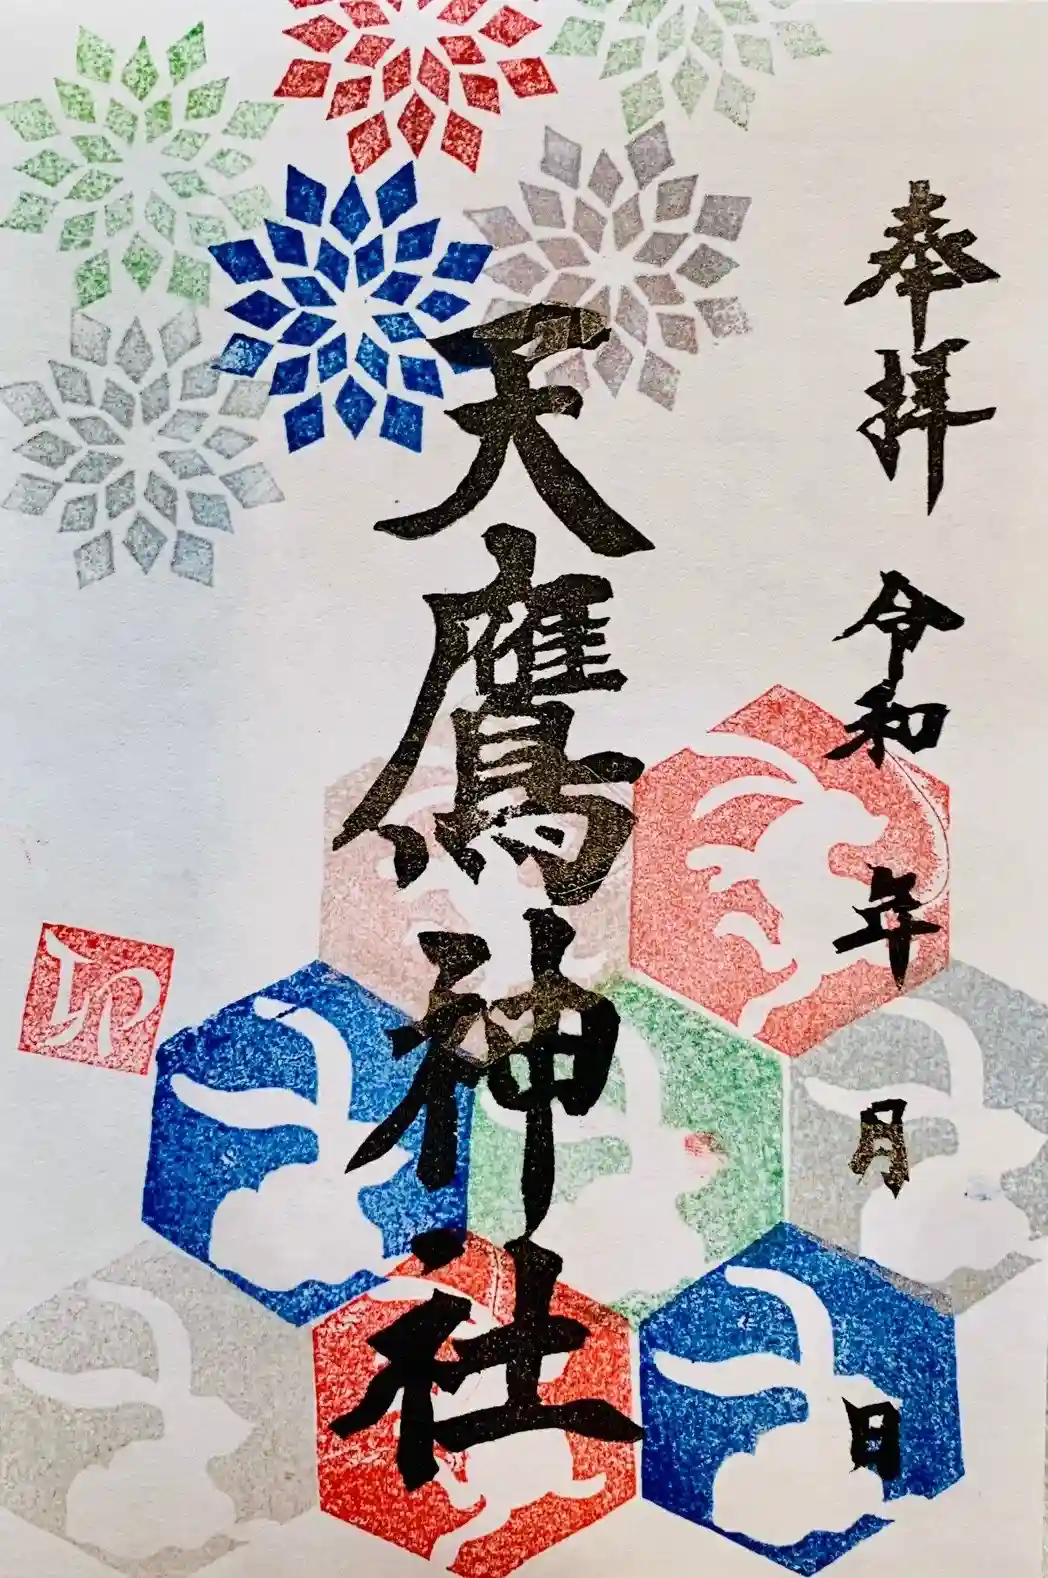 奉拝
令和 年 月 日
天鷹神社
卯